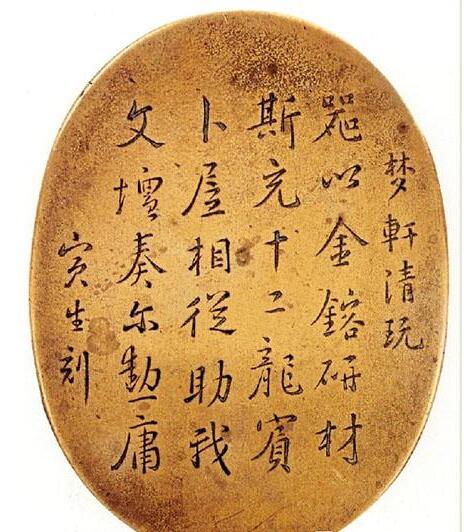 梦軒清玩
噐以金鎔研材
斯充十二龍賓
卜屋相從助我
文壇奏尔勳庸
寅生刻